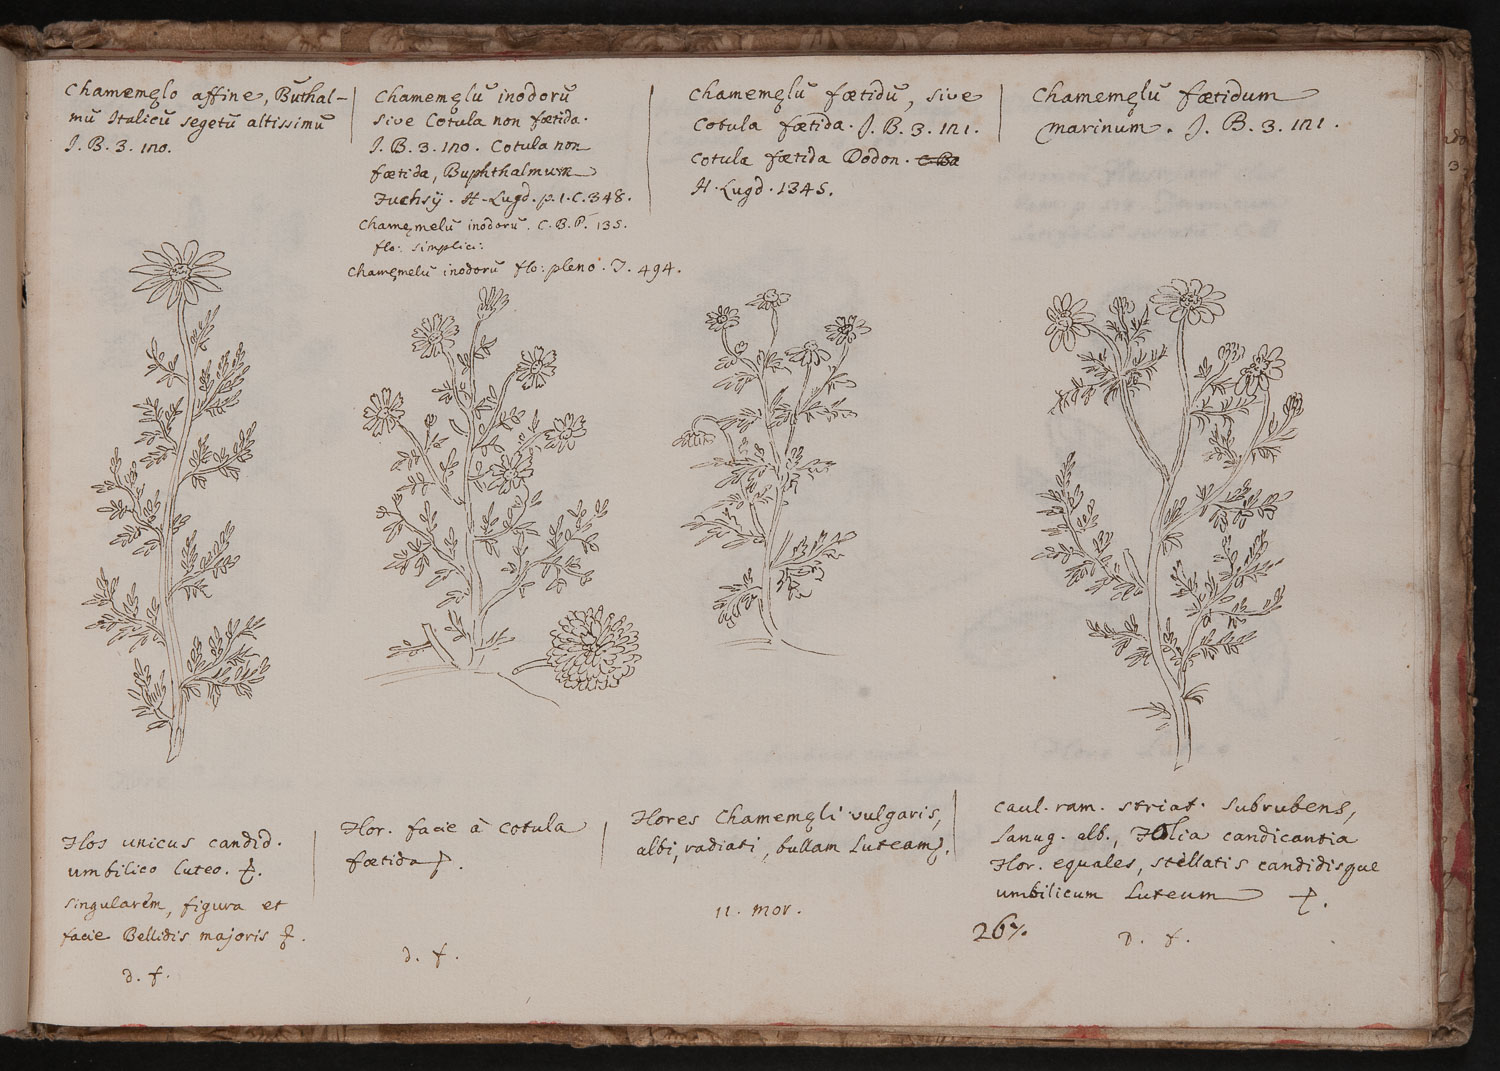 Chamemęlo affine, Buthal-
mū Italicū segetū altissimū
J. B. 3. 120.
Chamemęlū inodorū
sive Cotula non fœtida.
J. B. 3. 120. Cotula non
fœtida, Buphthalmum
Fuchsij. H. Lugd. p. 1. C. 348.
Chamęmelū inodorū. C. B. P. 135.
flo: simplici:
Chamęmelū inodorū flo: pleno. J. 494.
Chamemęlū fœtidū, sive
Cotula fœtida. J. B. 3. 121.
Cotula fœtida Dodon.
H. Lugd. 1345.
Chamemęlū fœtidum
marinum. J. B. 3. 121.
Flos unicus candid.
umbilico luteo.
singularēm, figura et
facie Bellidis majoris
d. f.
Flor. facie à Cotula
fœtida
d. f.
Flores Chamemęli vulgaris,
albi, radiati, bullam Luteam
11. mor.
Caul. ram. striat. subrubens,
Lanug. alb., Folia candicantia
Flor. equales, stellatis candidisque
umbilicum Luteum
267.
D. f.